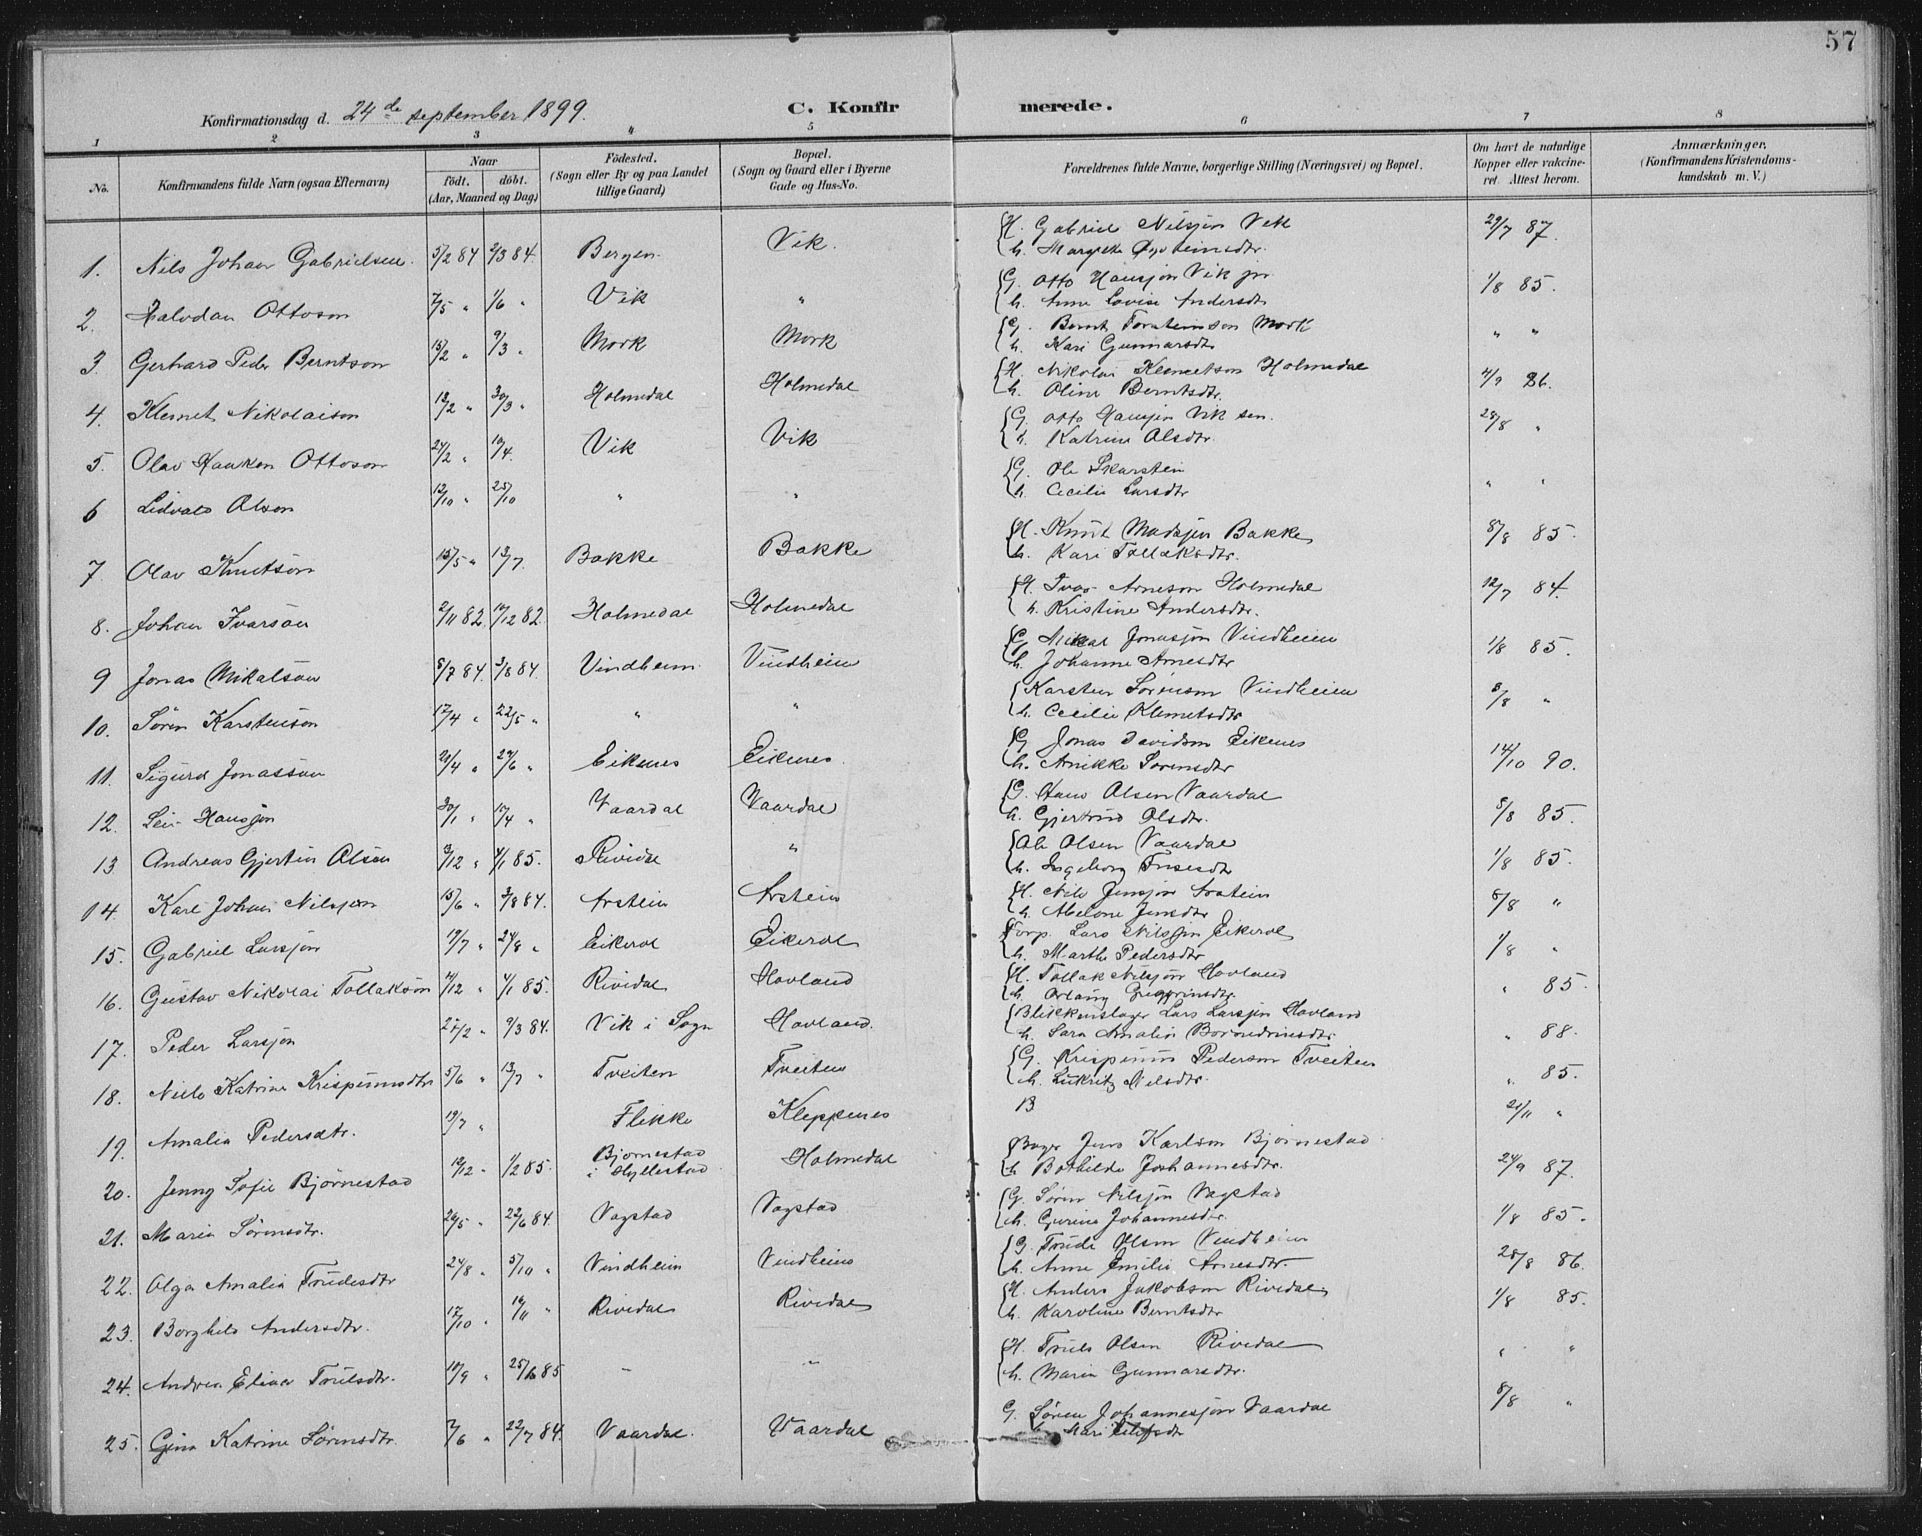 57
Konfirmationsdag d. 24de september 1899.
C. Konfirmerede.
1 2 3 " 5 6 7 8
No.
Konfirmandens fulde Navn (ogsaa Efternavn)
Naar
født. døbt.
(Aar, Maaned og Dag)
Födested.
(Sogn eller By og paa Landet
tillige Gaard)
Bopæl.
(Sogn og Gaard eller i Byerne
Gade og Hus-No.
Forældrenes fulde Navne, borgerlige Stilling (Næringsvei) og Bopæl.
Om havt de naturlige
Kopper eller vakcine-
ret. Attest herom.
Anmærkninger.
(Konfirmandens Kristendoms-
kundskab m. V.)
1. Nils Johan Gabrielsen. 5/2 84 2/3 84. Bergen. Vik. H. Gabriel Nilsjon Vik 29/7 87.
h. Margrete
2. Halvdan Ottoson 7/5 " 1/6 " Vik " G. Otto Hansjon Vik jr. 1/8 85.
h. Anne Lovise Andersdtr
3. Gerhard Peder Berntson 15/2 " 9/3 " Mork Mork G. Bernt Torsteinson Mork " "
h. Kari Gunnarsdtr
4. Klemet Nikolaison 12/2 " 30/3 " Holmedal Holmedal H. Nikolai Klemetson Holmedal 4/9 86.
h. Oline Berntsdtr.
5. Olav Haaken Ottoson 24/2 " 14/4. Vik Vik G. Otto Hansjon Vik sen. 28/8 "
h. Katrine Olsdtr.
6 Lidvald Olson 12/10 " 25/10 " " G. Ole Skarstein " "
h. Cecilie Larsdtr
7. Olav Knutson 15/5 " 13/7. Bakke Bakke H. Knut Madsjon Bakke 8/8 85.
h. Kari Tollaksdtr.
8. Johan Ivarson 2/11 82. 10/12 82. Holmedal Holmedal H. Ivar Arneson Holmedal 12/7 84.
h. Kristine Andersdtr.
9 Jonas Mikalson 8/7 84. 3/8 84. Vindheim. Vindheim G. Mikal Jonasjon Vindheim 1/8 85.
h. Johanne Arnesdtr
10. Søren Karstenson 17/4 " 22/5 " " " Karsten Sørenson Vindheim 8/8 "
h. Cecilie Klemetsdtr
11. Sigurd Jonasson 20/4 " 29/6 " Eikenes Eikenes. G. Jonas Davidson Eikenes 14/10 90.
h. Anikke Sørensdtr
12. Hansjon 30/1 " 14/4 " Vaardal Vaardal G. Hans Olsen Vaardal 8/8 85.
h. Gjertrud Olsdtr.
13 Andreas Gjertin Olson 3/12 " 4/1 85. Rividal " Ole Olsen Vaardal 1/8 85.
h. Ingeborg
14. Karl Johan Nilsjon 15/6 " 3/8 84. Arstein Arstein H. Nils Jensjon Arstein 8/8 "
h. Abelone Jensdtr
15. Gabriel Larsjon 19/7 " 24/8 " Eikerol Eikerol Torp. Lars Nilsjon Eikerol 1/8 "
h. Marthe Pedersdtr
16. Gustav Nikolai Tollakson 14/12 " 4/1 85. Rividal Hovland H. Tollak Nilsjon Hovland " 85.
h.
17. Peder Larsjon 27/2 " 9/3 84. Vik i Sogn Hovland. Blikkenslager Lars Larsjon Hovland " 88.
h. Sara Amalia
18. Nille Katrine Krispinusdtr 5/6 " 13/7 " Tveiten Tveiten G. Krispinus Pederson Tveiten " 85.
h. Lukritz Nilsdtr.
19. Amalia Pedersdtr. 19/7 " Flekke Kleppenes B 21/11 "
20. Jenny Sofie Bjørnestad 19/12 " 1/2 85. Bjørnestad
i Hyllestad Holmedal Jens Karlson Bjørnestad 24/9 87.
h. Bothilde Johannesdtr.
21. Maria Sørensdtr. 29/5 " 22/6 84. Vagstad Vagstad G. Søren Nilsjon Vagstad 1/8 85.
h. Gurine Johannesdtr.
22. Olga Amalia Trudesdtr 24/8 " 5/10 " Vindheim Vindheim G. Trude Olson Vindheim 28/8 86.
h. Anne Emilie Arnesdtr.
23. Borghild Andersdtr. 17/10 " 16/11 " Rividal Rividal H. Anders Jakobson Rividal 1/8 85.
h. Karoline Berntsdtr
24. Andrea Elina Trulsdtr. 10/9 " 25/10 85 " " H. Truls Olsen Rividal " "
h. Maria Gunnarsdtr.
25. Gina Katrine Sørensdtr. 7/6 " 22/7 84. Vaardal. Vaardal G. Søren Johannesjon Vaardal 8/8 "
h. Mari